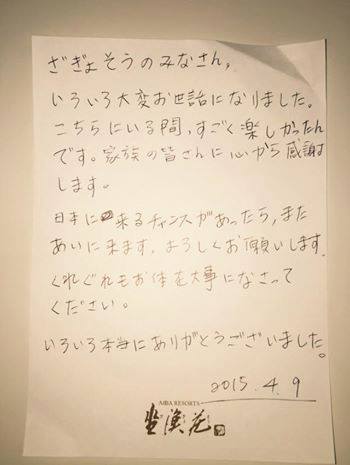 ざぎょそうのみなさん,
いろいろ大変お世話になりました。
こちらにいる間,すごく楽しかったん
です。家族の皆さんに心から感謝
します。
日本に来るチャンスがあったら,また
あいに来ます,よろしくお願いします.
くれぐれもお体を大事になさって
ください。
いろいろ本当にありがとうございました。
2015.4.9
AIBA RESORTS
坐漁荘